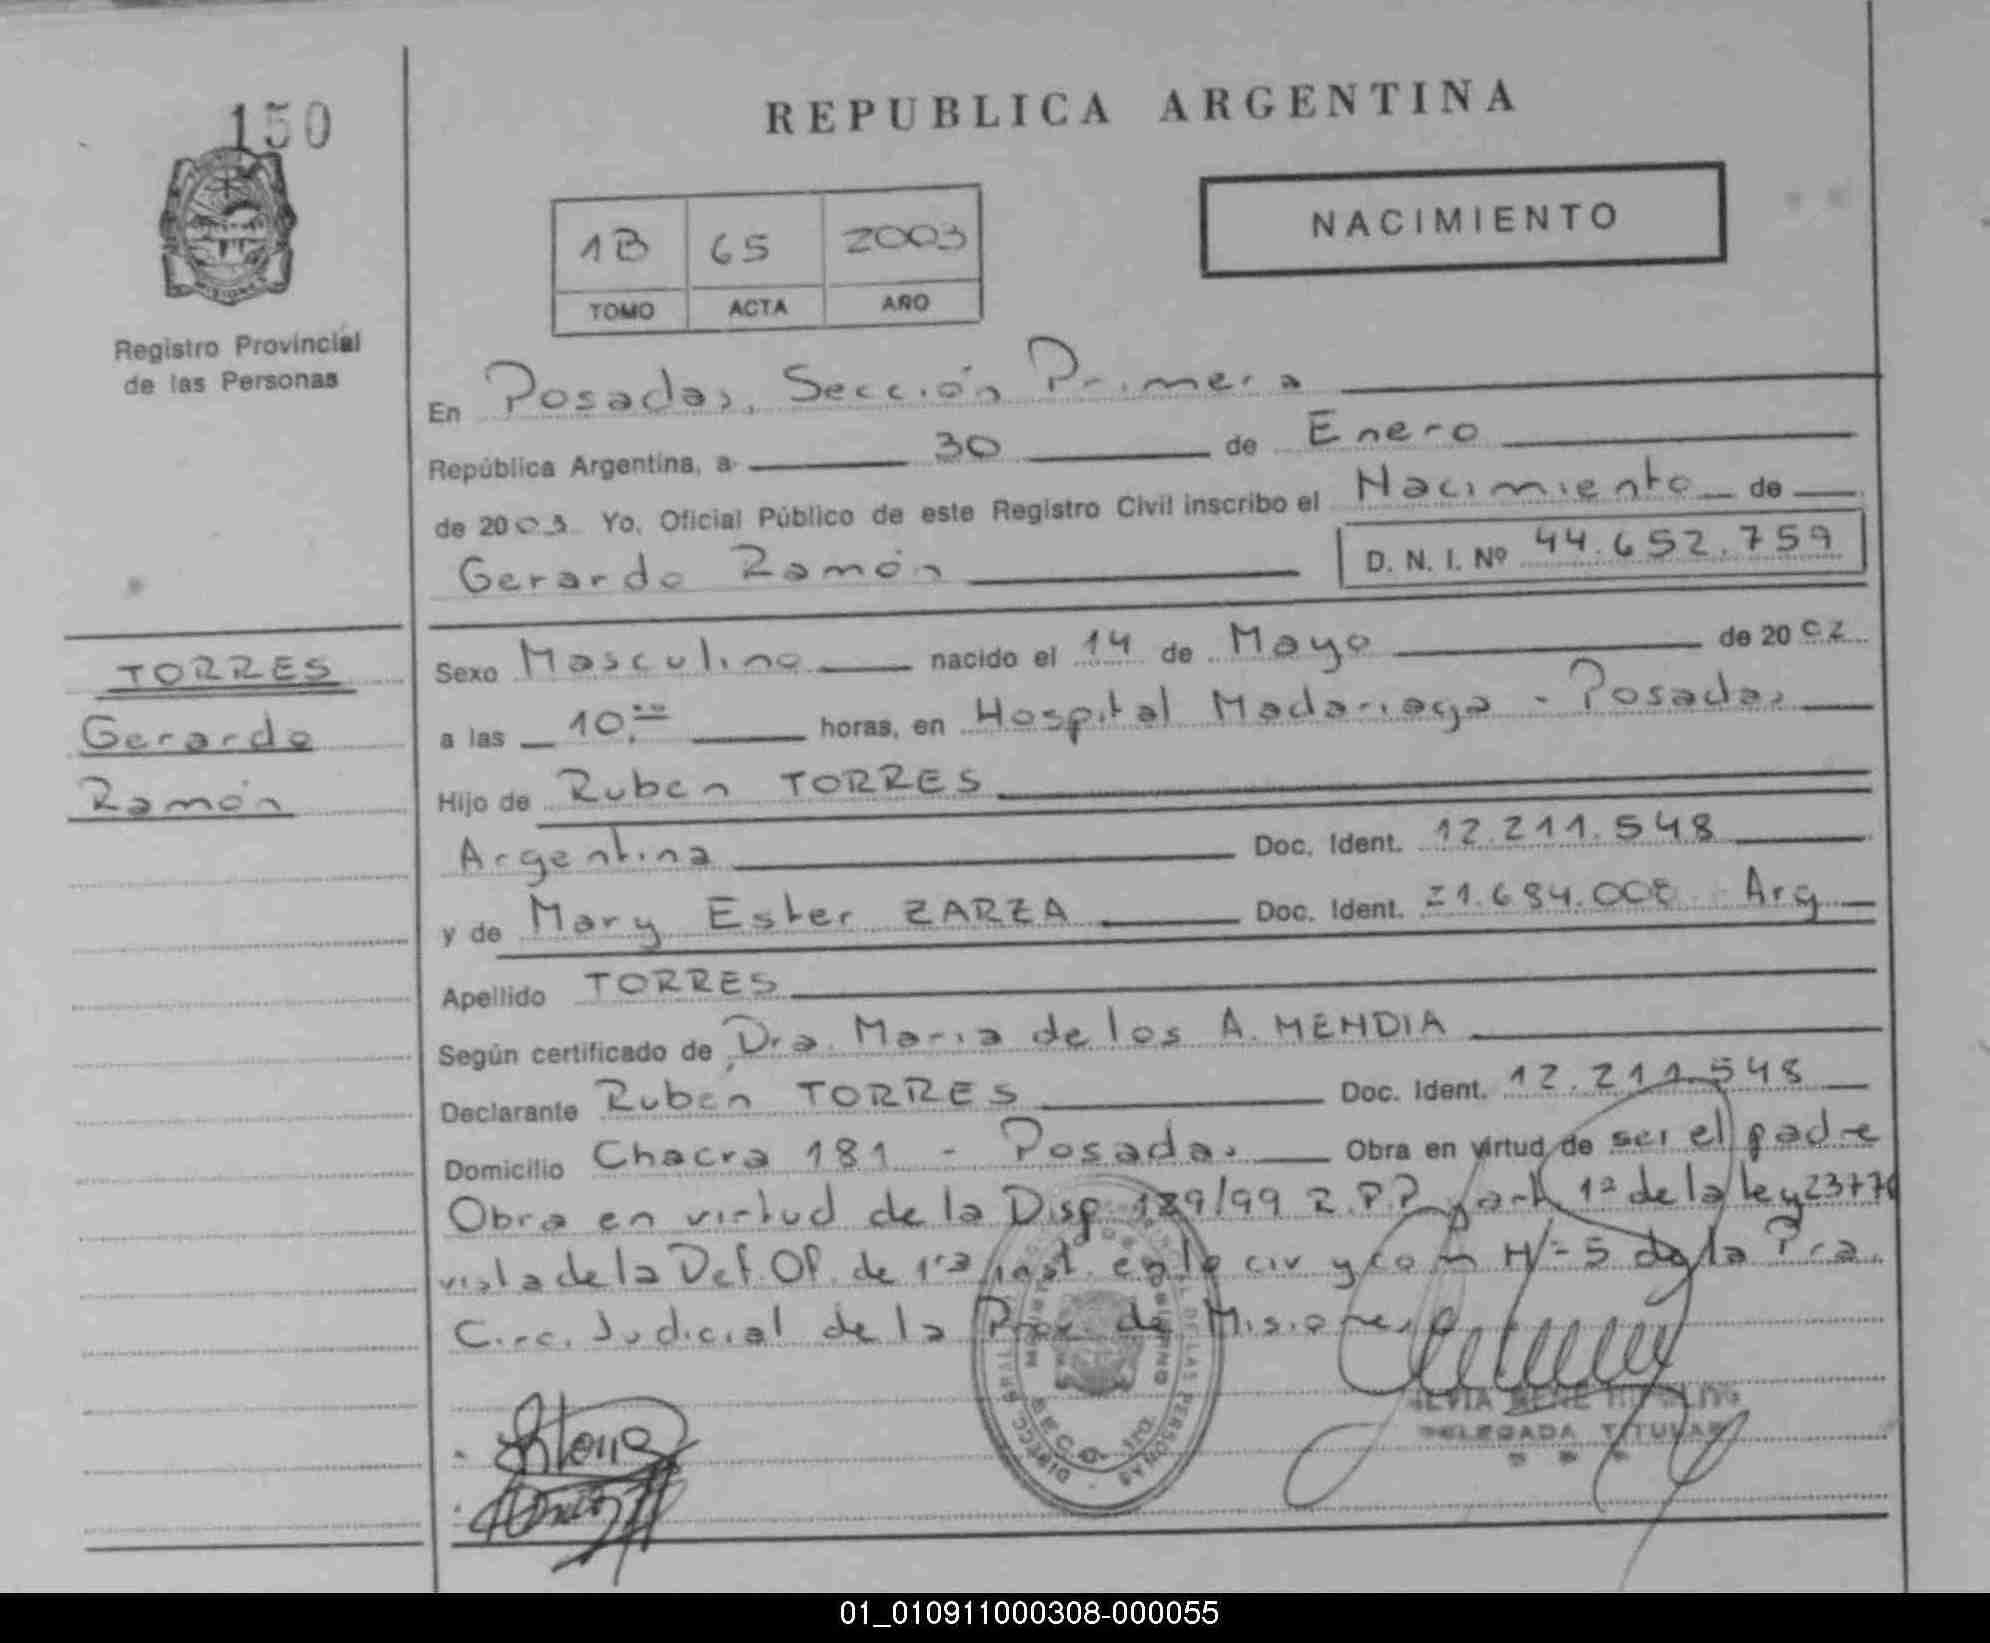 150
REPUBLICA ARGENTINA
NACIMIENTO
1B 65 2003
TOMO ACTA AÑO
Registro Provincial
de las Personas
En Posadas, Sección Primera
República Argentina, a 30 de Enero
de 2003 Yo, Oficial Público de este Registro Civil inscribo el Nacimiento de
Gerardo Ramón D. N. I. Nº 44.652.759
TORRES
Gerardo
Ramón
Sexo Masculino nacido el 14 de Mayo de 2002
a las 10,00 horas, en Hospital Madariaga - Posadas
Hijo de Ruben TORRES
Argentina Doc. Ident. 12.211.548
y de Mary Ester ZARZA Doc. Ident. 21.684.008 Arg
Apellido TORRES
Según certificado de Dra. Maria de los A. MENDIA
Declarante Ruben TORRES Doc. Ident. 12.211.548
Domicilio Chacra 181 - Posadas Obra en virtud de ser el padre
Obra en virtud de la Disp. 129/99 R.P.P y art 1º de la ley 23776
vista de la Def. Of. de 1ra inst. en lo civ y com Nº 5 de la 1ra.
Circ. Judicial de la Prov. de Misiones
DELEGADA TITULAR
01_010911000308-000055